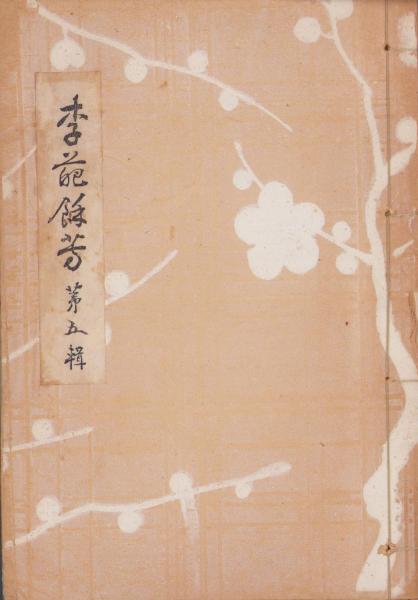 李葩餘芳 第五輯